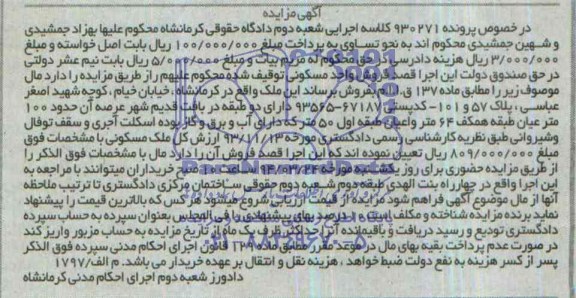 آگهی مزایده
در خصوص پرونده ۹۳۰۲۷۱ کلاسه اجرایی شعبه دوم دادگاه حقوقی کرمانشاه محکوم علیها بهزاد جمشیدی
و شهین جمشیدی محکوم اند به نحو تساوی به پرداخت مبلغ ۱۰۰/۰۰۰/۰۰۰ ریال بابت اصل خواسته و مبلغ
۳/۰۰۰/۰۰۰ ریال هزینه دادرسی در حق محکوم له مریم بیات و مبلغ ۵/۰۰۰/۰۰۰ ریال بابت نیم عشر دولتی
در حق صندوق دولت این اجرا قصد فروش واحد مسکونی توقیف شده محکوم علیهم از طریق مزایده را دارد مال
موصوف زیر را مطابق ماده ۱۳۷ ق.ا.م بفروش برساند این ملک واقع در کرمانشاه ، خیابان خیام ، کوچه شهید اصغر
عباسی ، پلاک ۵۷ و ۱۰۱ -کدپستی ۶۷۱۸۷-۹۳۵۶۵ دارای دو طبقه در بافت قدیم شهر عرصه آن حدود ۱۰۰
متر عیان طبقه همکف ۶۴ متر واعیان طبقه اول ۵۰ متر که دارای آب و برق و گاز بوده اسکلت آجری و سقف توفال
وشیروانی طبق نظریه کارشناسی رسمی دادگستری مورخه ۹۳/۱۱/۱۳ ارزش کل ملک مسکونی با مشخصات فوق
مبلغ ۸۰۹/۰۰۰/۰۰۰ ریال تعیین نموده اند که این اجرا قصد فروش آن را دارد مال با مشخصات فوق الذکر را
از طریق مزایده حضوری برای روز یکشنبه مورخه ساعت ۱۰ صبح خریداران میتوانند با مراجعه به
این اجرا واقع در چهارراه بنت الهدی طبقه دوم شعبه دوم حقوقی ساختمان مرکزی دادگستری تا ترتیب ملاحظه
آنها از مال موضوع آگهی فراهم شود مزایده از قیمت ارزیابی شروع میشود هر کس که بالاترین قیمت را پیشنهاد
نماید برنده مزایده شناخته و مکلف است ۱۰ درصد بهای پیشنهادی را فی المجلس بعنوان سپرده به حساب سپرده
دادگستری تودیع و رسید دریافت و باقیمانده آنرا حداکثر ظرف یک ماه از تاریخ مزایده به حساب مزبور واریز کند
در صورت عدم پرداخت بقیه بهای مال در موعد مقرر مطابق ماده ۱۲۹ قانون اجرای احکام مدنی سپرده فوق الذکر
پس از کسر هزینه به نفع دولت ضبط خواهد ، هزینه نقل و انتقال بر عهده خریدار می باشد. م الف/۱۷۹۷
دادورز شعبه دوم اجرای احکام مدنی کرمانشاه